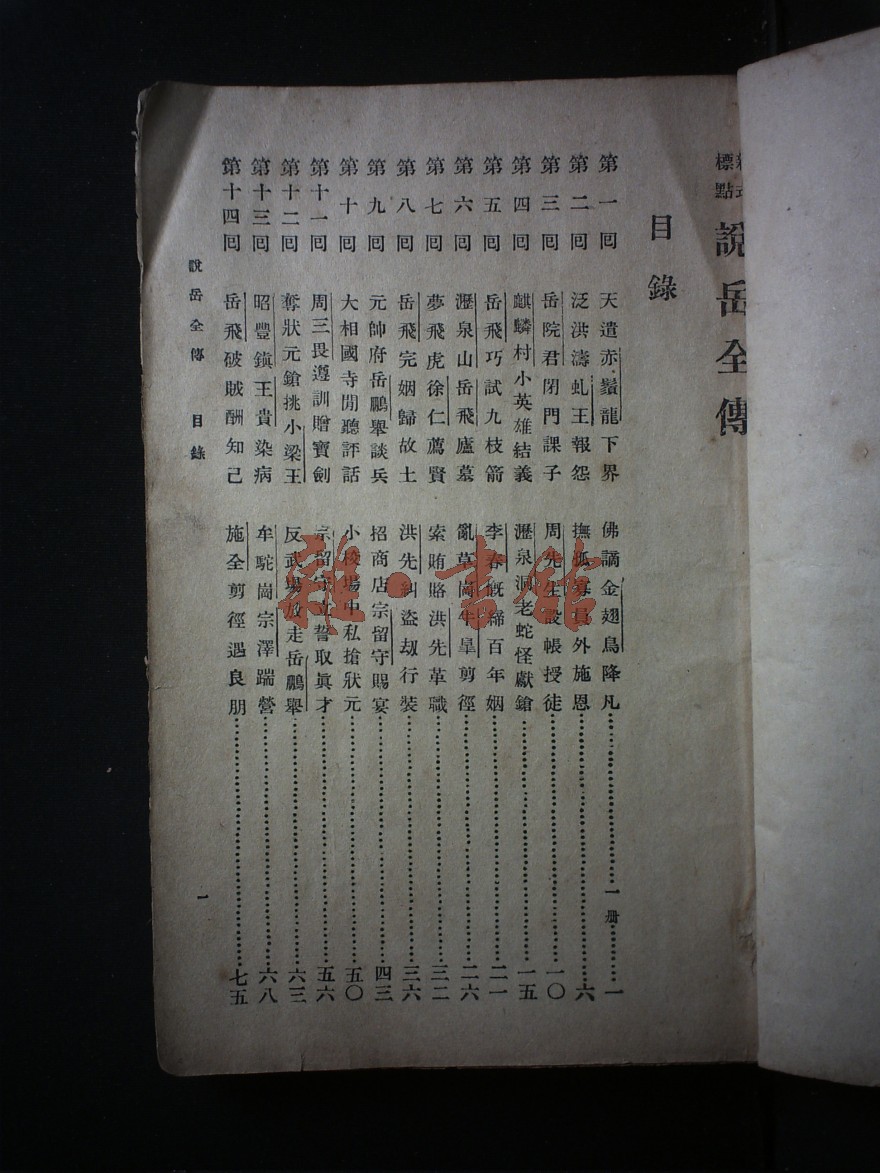 新式標點 說岳全傳
目錄
第一回 天遣赤鬚龍下界 佛謫金翅鳥降凡………一册………一
第二回 泛洪濤虬王報怨 撫孤寡員外施恩………六
第三回 岳院君閉門課子 周先生設帳授徒………一〇
第四回 麒麟村小英雄結義 瀝泉洞老蛇怪獻鎗………一五
第五回 岳飛巧試九枝箭 李春慨締百年姻………二一
第六回 瀝泉山岳飛廬墓 亂草崗牛臯剪徑………二六
第七回 夢飛虎徐仁薦賢 索賄賂洪先革職………三二
第八回 岳飛完姻歸故土 洪先糾盜劫行裝………三六
第九回 元帥府岳鵬舉談兵 招商店宗留守賜宴………四三
第十回 大相國寺閒聽評話 小校場中私搶狀元………五〇
第十一回 周三畏遵訓贈寶劍 宗留守立誓取眞才………五六
第十二回 奪狀元鎗挑小梁王 反武場放走岳鵬舉………六三
第十三回 昭豐鎮王貴染病 牟駝崗宗澤踹營………六八
第十四回 岳飛破賊酬知己 施全剪徑遇良朋………七五
說岳全傳 目錄 一
雜·書館